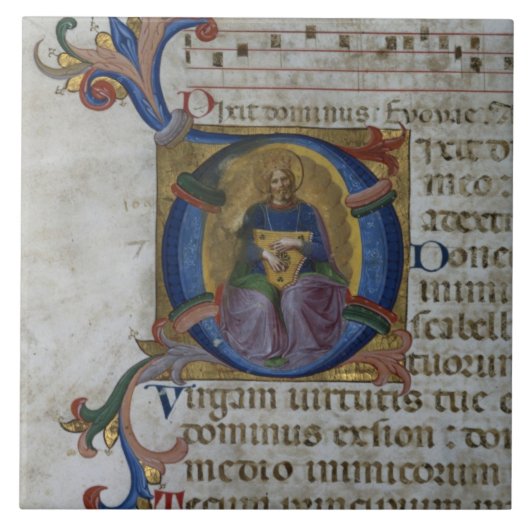 Dixit dominus: Evovae: A
ixit d
meo:
a dext
Donec
inimi
scabell
tuorum
Virgam virtutis tue e
dominus exsion: do
medio inimicorum
Tecum principium in